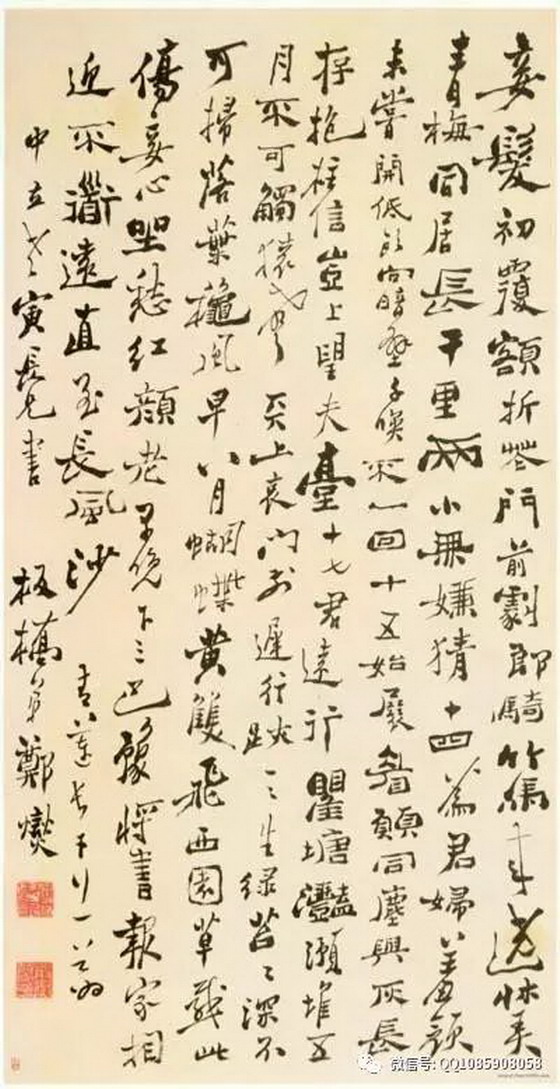 妾髮初覆額折花門前劇郎騎竹馬來遶牀弄
青梅同居長干里兩小無嫌猜十四為君婦羞顏
未嘗開低頭向暗壁千喚不一回十五始展眉願同塵與灰長
存抱柱信豈上望夫臺十七君遠行瞿塘灩澦堆五
月不可觸猿聲天上哀門前遲行跡一一生綠苔苔深不
可掃落葉穐風早八月蝴蝶黃雙飛西園草感此
傷妾心坐愁紅顏老早晚下三巴豫將書報家相
迎不道遠直至長風沙 青蓮長干行一首為
中立老寅長兄書 板橋弟鄭燮
微信号: QQ1085908058